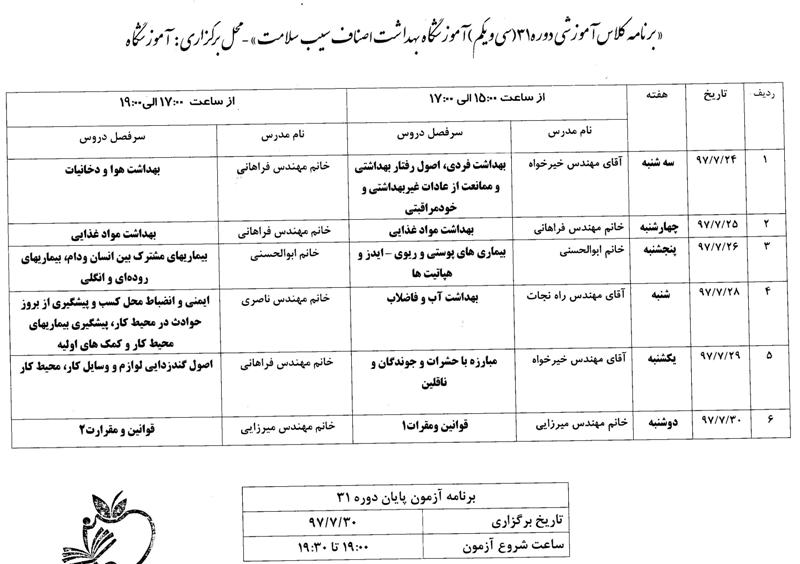 «برنامه کلاس آموزشی دوره ۳۱(سی و یکم)آموزشگاه بهداشت اصناف سیب سلامت»-محل برگزاری: آموزشگاه
ردیف تاریخ هفته از ساعت ۱۵:۰۰ الی ۱۷:۰۰ از ساعت ۱۷:۰۰ الی ۱۹:۰۰
نام مدرس سرفصل دروس نام مدرس سرفصل دروس
۱ ۹۷/۷/۲۴ سه شنبه آقای مهندس خیرخواه بهداشت فردی، اصول رفتار بهداشتی خانم مهندس فراهانی بهداشت هوا و دخانیات
و ممانعت از عادات غیربهداشتی و
خودمراقبتی
۲ ۹۷/۷/۲۵ چهارشنبه خانم مهندس فراهانی بهداشت مواد غذایی خانم مهندس فراهانی بهداشت مواد غذایی
۳ ۹۷/۷/۲۶ پنجشنبه خانم ابوالحسنی بیماری های پوستی و ریوی – ایدز و خانم ابوالحسنی بیماریهای مشترک بین انسان ودام، بیماریهای
هپاتیت ها روده‌ای و انگلی
۴ ۹۷/۷/۲۸ شنبه آقای مهندس راه نجات بهداشت آب و فاضلاب خانم مهندس ناصری ایمنی و انضباط محل کسب و پیشگیری از بروز
حوادث در محیط کار، پیشگیری بیماریهای
محیط کار و کمک های اولیه
۵ ۹۷/۷/۲۹ یکشنبه آقای مهندس خیرخواه مبارزه با حشرات و جوندگان و خانم مهندس فراهانی اصول گندزدایی لوازم و وسایل کار، محیط کار
ناقلین
۶ ۹۷/۷/۳۰ دوشنبه خانم مهندس میرزایی قوانین ومقرات۱ خانم مهندس میرزایی قوانین و مقرارت۲
برنامه آزمون پایان دوره ۳۱
تاریخ برگزاری ۹۷/۷/۳۰
ساعت شروع آزمون ۱۹:۰۰ تا ۱۹:۳۰